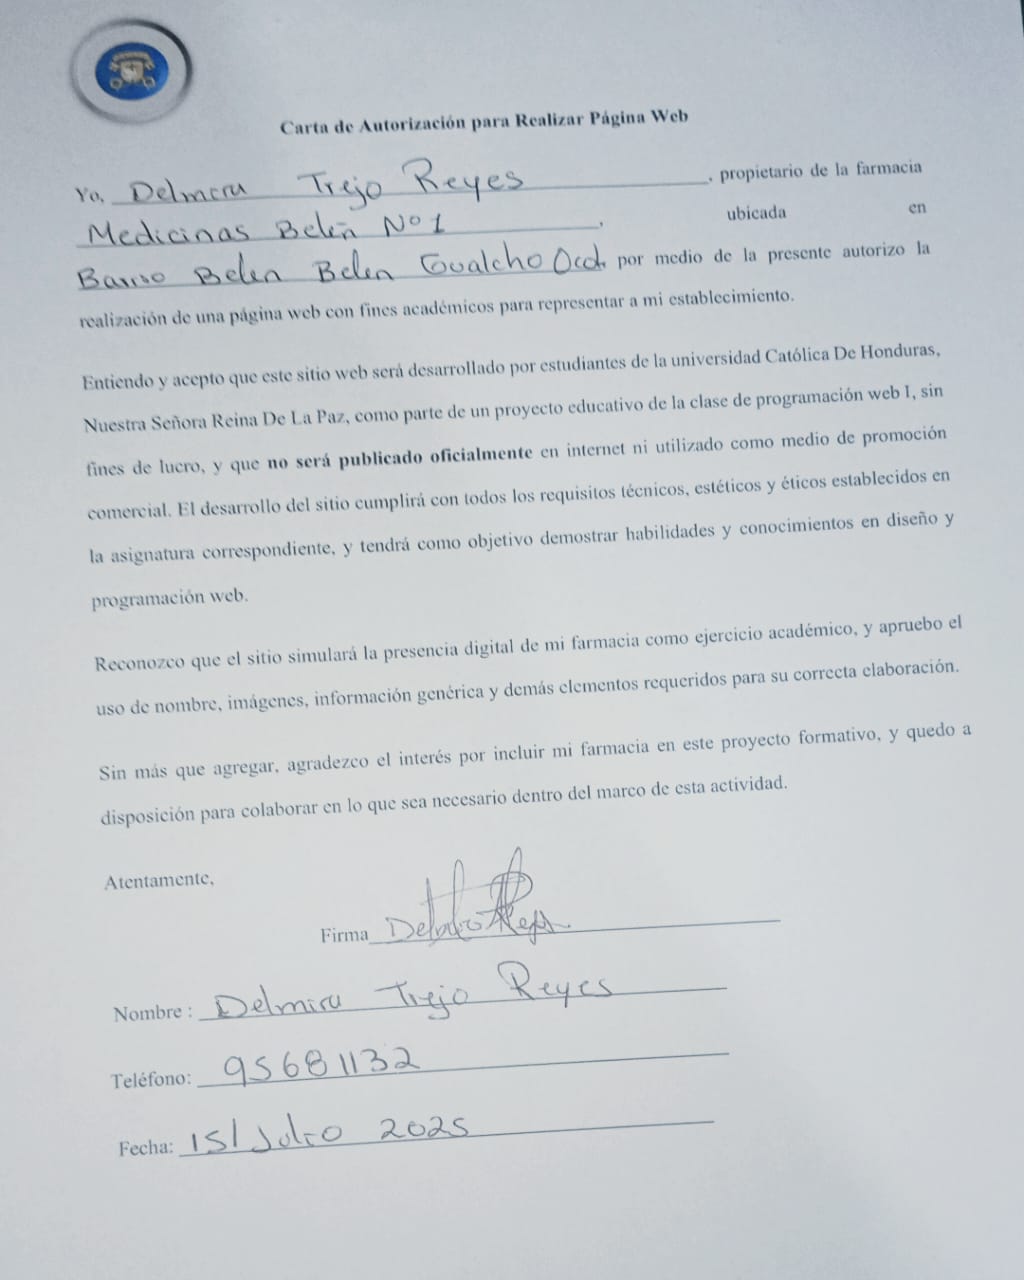 Carta de Autorización para Realizar Página Web
Yo, Delmira Trejo Reyes, propietario de la farmacia
Medicinas Belen Nº1, ubicada en
Barrio Belen Belen Gualcho Ocot. por medio de la presente autorizo la
realización de una página web con fines académicos para representar a mi establecimiento.
Entiendo y acepto que este sitio web será desarrollado por estudiantes de la universidad Católica De Honduras,
Nuestra Señora Reina De La Paz, como parte de un proyecto educativo de la clase de programación web I, sin
fines de lucro, y que no será publicado oficialmente en internet ni utilizado como medio de promoción
comercial. El desarrollo del sitio cumplirá con todos los requisitos técnicos, estéticos y éticos establecidos en
la asignatura correspondiente, y tendrá como objetivo demostrar habilidades y conocimientos en diseño y
programación web.
Reconozco que el sitio simulará la presencia digital de mi farmacia como ejercicio académico, y apruebo el
uso de nombre, imágenes, información genérica y demás elementos requeridos para su correcta elaboración.
Sin más que agregar, agradezco el interés por incluir mi farmacia en este proyecto formativo, y quedo a
disposición para colaborar en lo que sea necesario dentro del marco de esta actividad.
Atentamente,
Firma
Nombre : Delmira Trejo Reyes
Teléfono: 95681132
Fecha: 15/Julio 2025